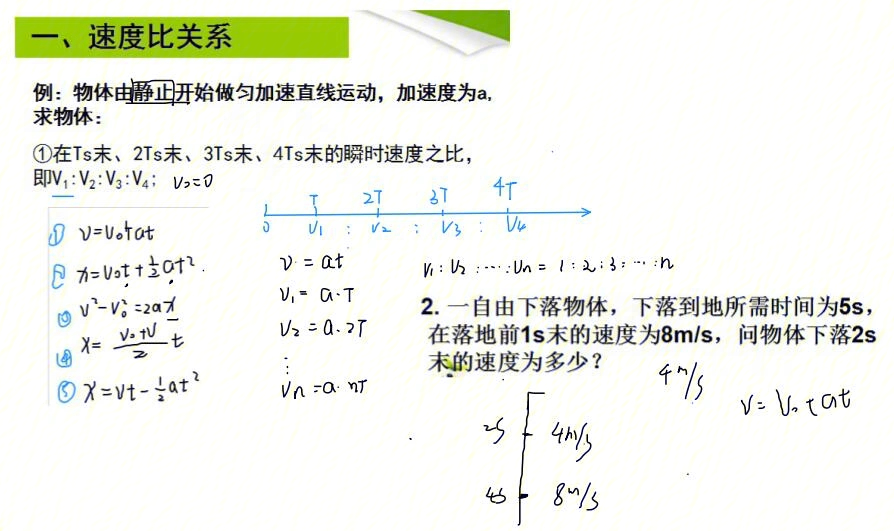 一、速度比关系
例：物体由静止开始做匀加速直线运动，加速度为a,
求物体：
①在Ts末、2Ts末、3Ts末、4Ts末的瞬时速度之比，
即V₁:V₂:V₃:V₄; V₀=0
T 2T 3T 4T
0 V₁ : V₂ : V₃ : V₄
① v=v₀+at
② x=v₀t+½at².
③ v²-v₀²=2ax
④ x=(v₀+v)/2 t
⑤ x=vt-½at²
v=at
v₁=a·T
v₂=a·2T
⋮
vₙ=a·nT
v₁:v₂:⋯:vₙ=1:2:3:⋯:n
2. 一自由下落物体，下落到地所需时间为5s，
在落地前1s末的速度为8m/s，问物体下落2s
末的速度为多少？
4m/s
v=v₀+at
2s 4m/s
4s 8m/s